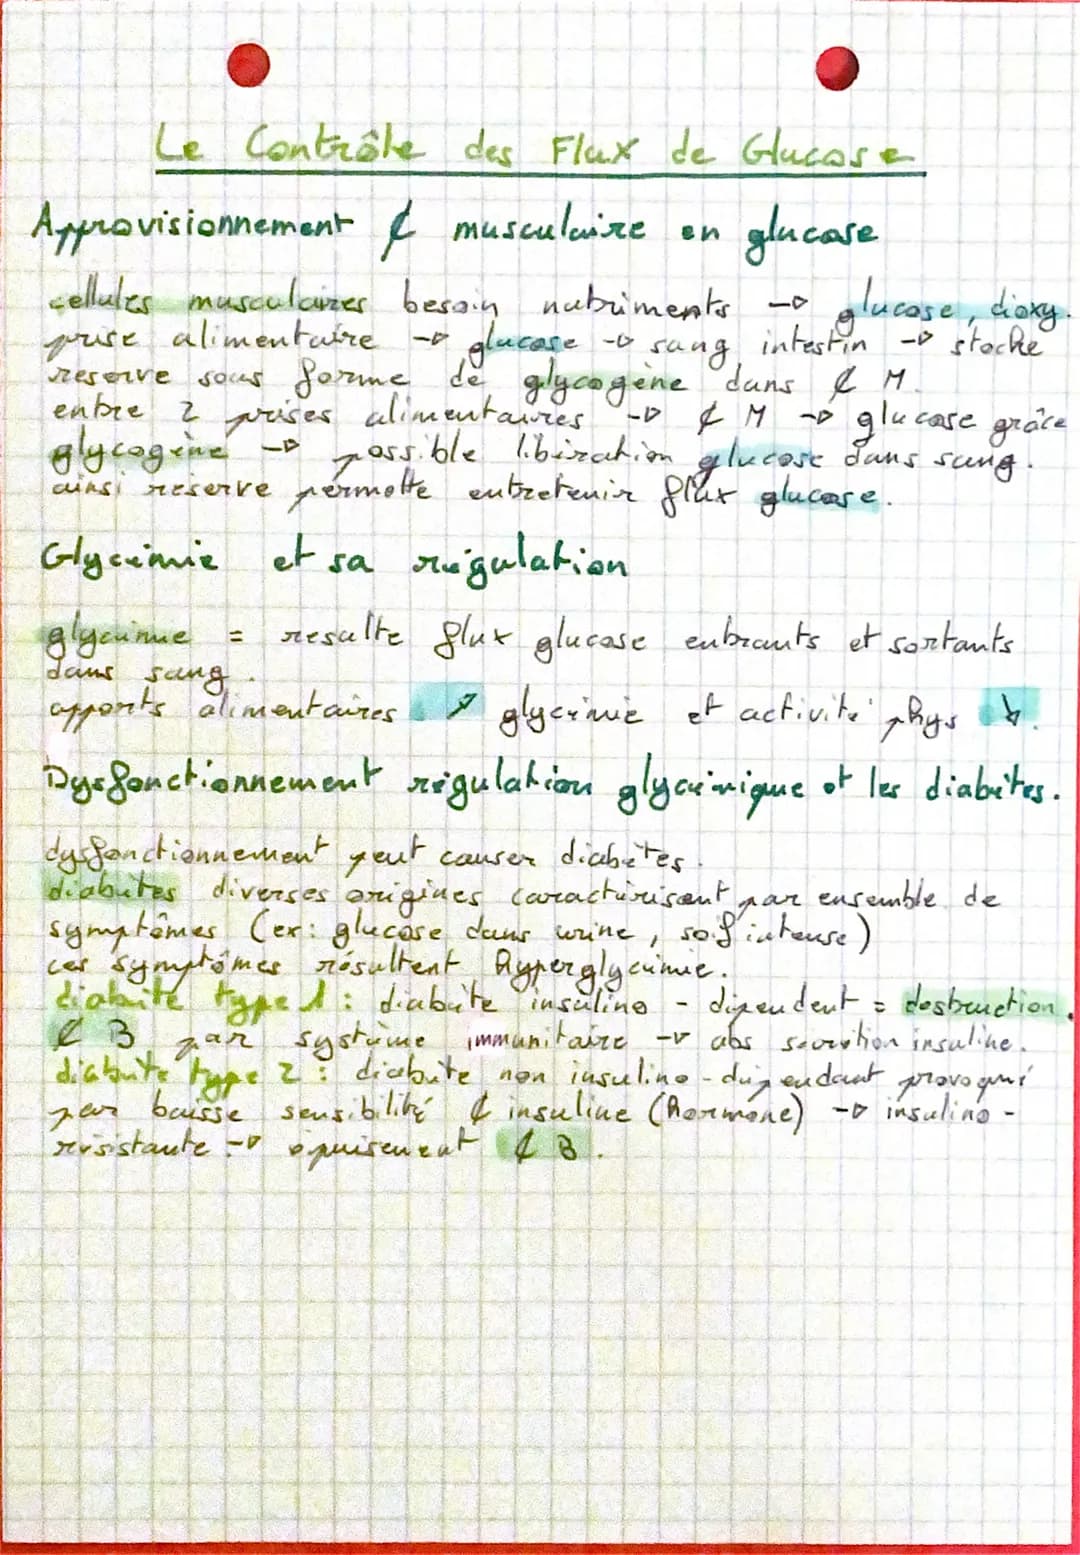 Le Contrôle des Flux de Glucose
Approvisionnement ¢ musculaire en glucose
cellules musculaires besoin nutriments → glucose, dioxy.
prise alimentaire → glucose → sang intestin → stocke
reserve sous forme de glycogène dans ¢ M.
entre 2 prises alimentaires → ¢ M → glucose grâce
glycogène → possible libération glucose dans sang.
ainsi réserve permette entretenir flux glucose.
Glycémie et sa régulation
glycémie = resulte flux glucose entrants et sortants
dans sang.
apports alimentaires ↗ glycémie et activité phys ↘.
Dysfonctionnement régulation glycémique et les diabètes.
dysfonctionnement peut causer diabètes.
diabètes diverses origines caractérisent par ensemble de
symptômes (ex: glucose dans urine, soif intense)
ces symptômes résultent hyperglycémie.
diabète type 1 : diabète insulino - dépendant = destruction
¢ B par système immunitaire → abs sécrétion insuline.
diabète type 2 : diabète non insulino-dépendant provoqué
par baisse sensibilité ¢ insuline (hormone) → insulino-
résistante → épuisement ¢ B.